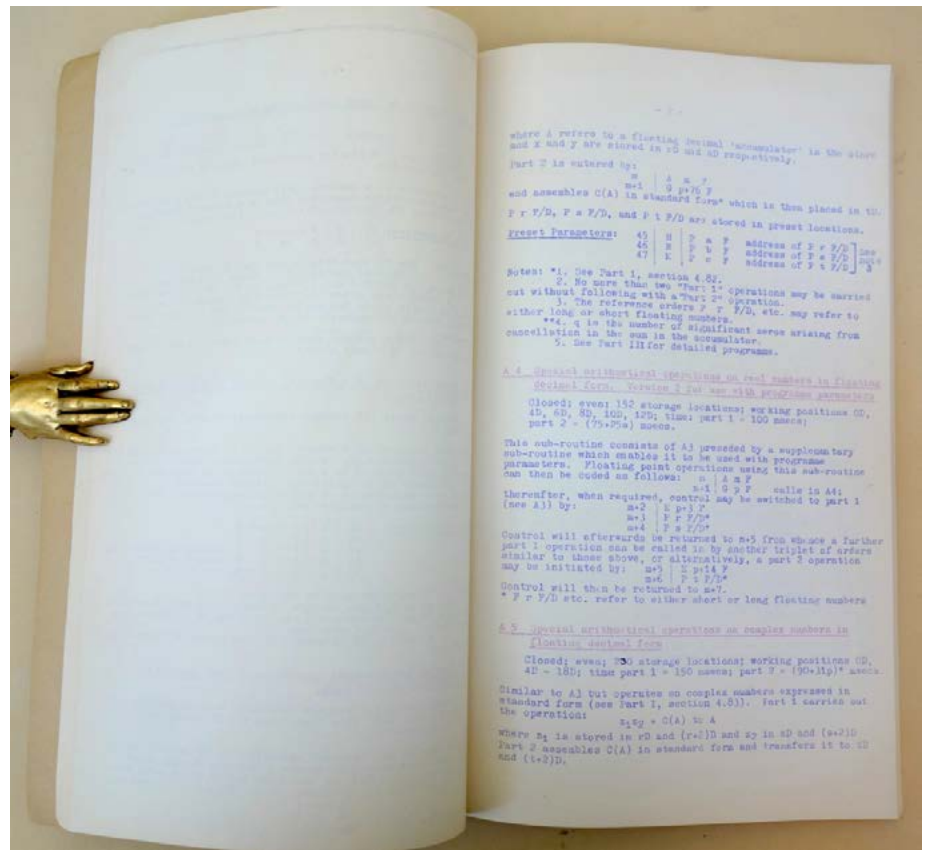 where A refers to a floating decimal 'accumulator' in the store
and x and y are stored in rD and sD respectively.
Part 2 is entered by:
m | A m F
m+1 | G p+76 F
and assembles C(A) in standard form* which is then placed in tD.
P r F/D, P s F/D, and P t F/D are stored in preset locations.
Preset Parameters: 45 | H | P a F address of P r F/D
46 | N | P b F address of P s F/D see note
47 | | P c F address of P t F/D 3
Notes: *1. See Part 1, section 4.82.
2. No more than two "Part 1" operations may be carried
out without following with a "Part 2" operation.
3. The reference orders P r F/D, etc. may refer to
either long or short floating numbers.
**4. q is the number of significant zeros arising from
cancellation in the sum in the accumulator.
5. See Part III for detailed programme.
A 4 Special arithmetical operations on real numbers in floating
decimal form. Version 2 for use with programme parameters
Closed; even; 152 storage locations; working positions 0D,
4D, 6D, 8D, 10D, 12D; time: part 1 - 100 msecs;
part 2 - (75+25a) msecs.
This sub-routine consists of A3 preceded by a supplementary
sub-routine which enables it to be used with programme
parameters. Floating point operations using this sub-routine
can then be coded as follows: m | A m F
m+1 | G p F calls in A4;
thereafter, when required, control may be switched to part 1
(see A3) by: m+2 | E p+3 F
m+3 | P r F/D*
m+4 | P s F/D*
Control will afterwards be returned to m+5 from whence a further
part 1 operation can be called in by another triplet of orders
similar to those above, or alternatively, a part 2 operation
may be initiated by: m+5 | E p+14 F
m+6 | P t F/D*
Control will then be returned to m+7.
* P r F/D etc. refer to either short or long floating numbers
A 5 Special arithmetical operations on complex numbers in
floating decimal form
Closed; even; storage locations; working positions 0D,
4D - 18D; time part 1 - 150 msecs; part 2 - (90+31p)* msecs.
Similar to A3 but operates on complex numbers expressed in
standard form (see Part I, section 4.83). Part 1 carries out
the operation: z₁z₂ + C(A) to A
where z₁ is stored in rD and (r+2)D and z₂ in sD and (s+2)D
Part 2 assembles C(A) in standard form and transfers it to tD
and (t+2)D.